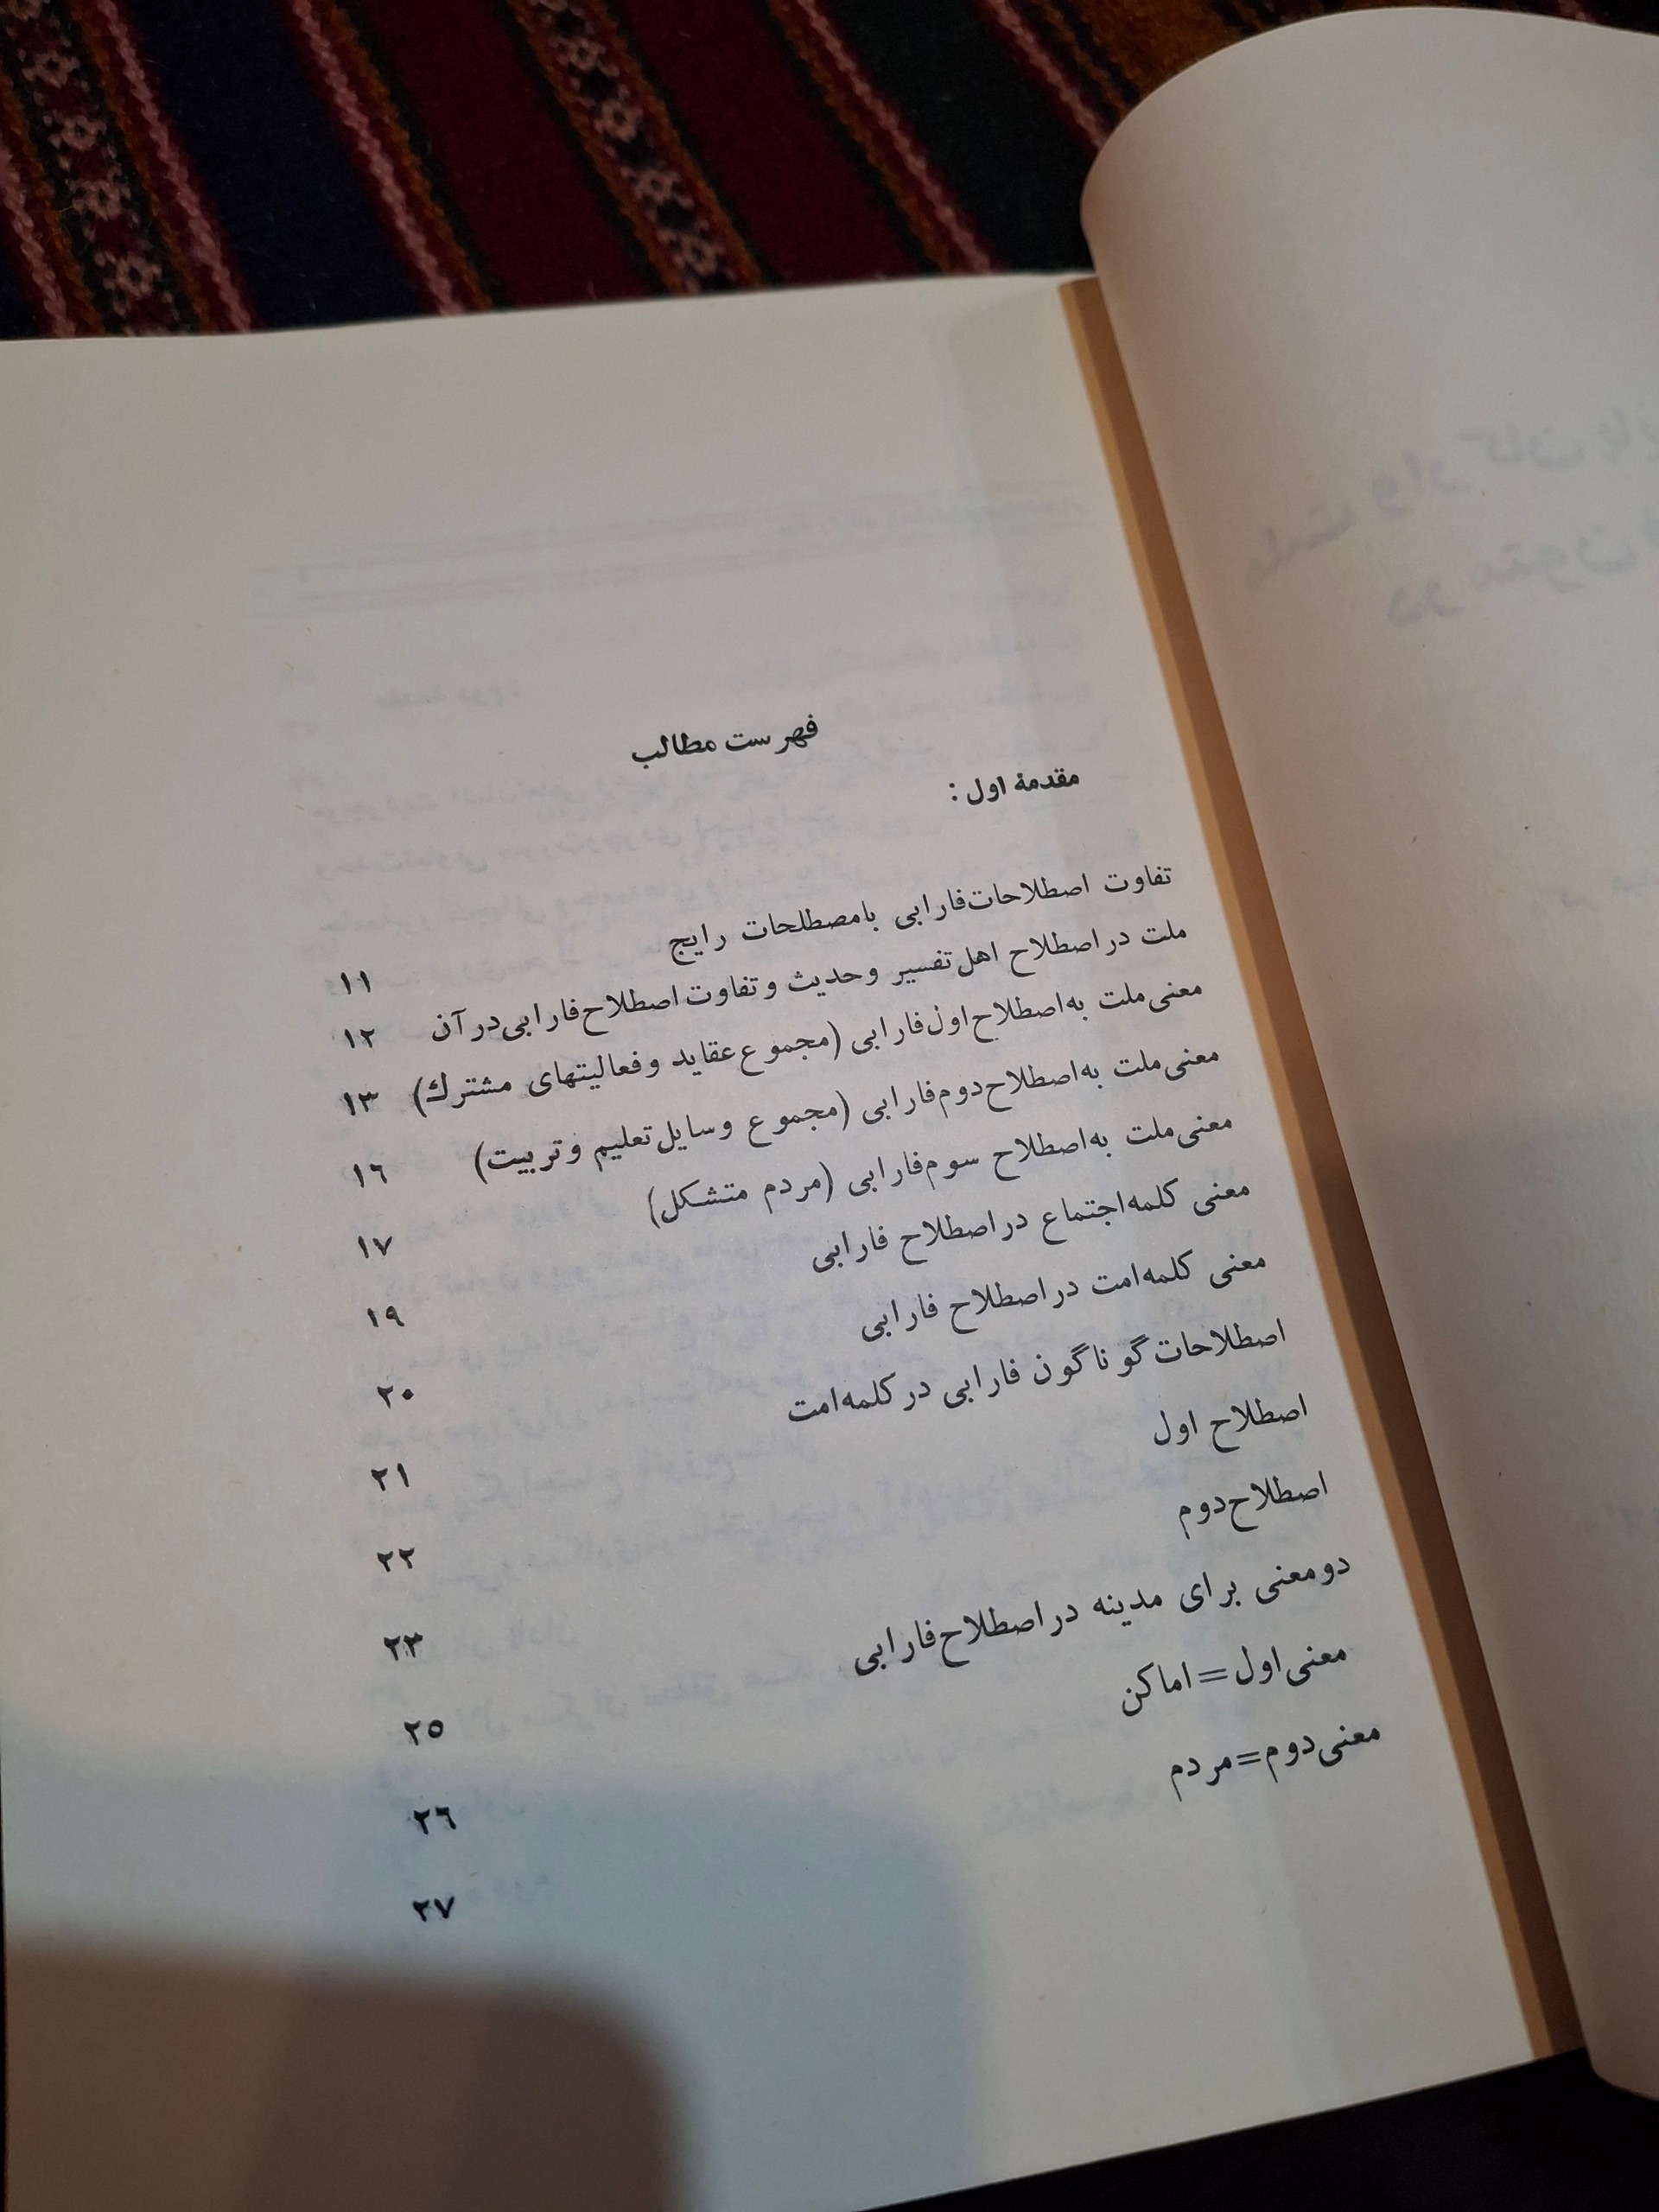 فهرست مطالب
مقدمهٔ اول :
تفاوت اصطلاحات فارابی بامصطلحات رایج ۱۱
ملت در اصطلاح اهل تفسیر وحدیث و تفاوت اصطلاح فارابی در آن ۱۲
معنی ملت به اصطلاح اول فارابی (مجموع عقاید و فعالیتهای مشترك) ۱۳
معنی ملت به اصطلاح دوم فارابی (مجموع وسایل تعلیم و تربیت) ۱٦
معنی ملت به اصطلاح سوم فارابی (مردم متشکل) ۱۷
معنی کلمه اجتماع در اصطلاح فارابی ۱۹
معنی کلمه امت در اصطلاح فارابی ۲۰
اصطلاحات گوناگون فارابی در کلمه امت ۲۱
اصطلاح اول ۲۲
اصطلاح دوم ۲۳
دو معنی برای مدینه در اصطلاح فارابی ۲٥
معنی اول = اماکن ۲٦
معنی دوم = مردم ۲۷